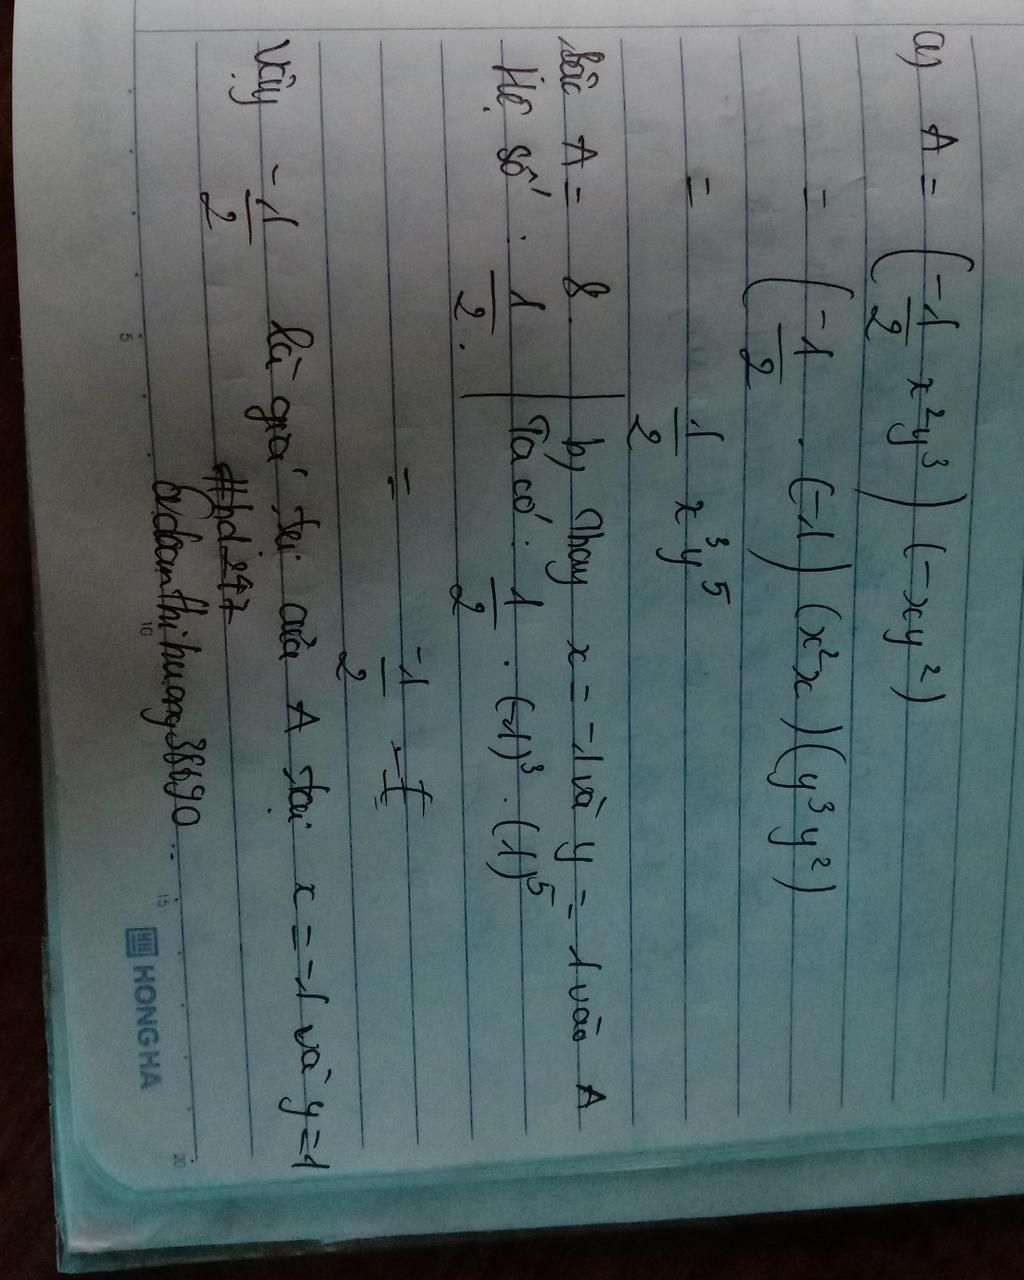 a) A = (-1/2 x²y³) (-xy²)
= (-1/2 . (-1)) (x²x) (y³y²)
= 1/2 x³y⁵
bậc A = 8.
Hệ số : 1/2.
b) Thay x = -1 và y = 1 vào A
Ta có : 1/2 . (-1)³ . (1)⁵
= -1/2
Vậy -1/2 là giá trị của A tại x = -1 và y = 1
#hd247
doanthihuong38690
5
10
15
20
HONG HA